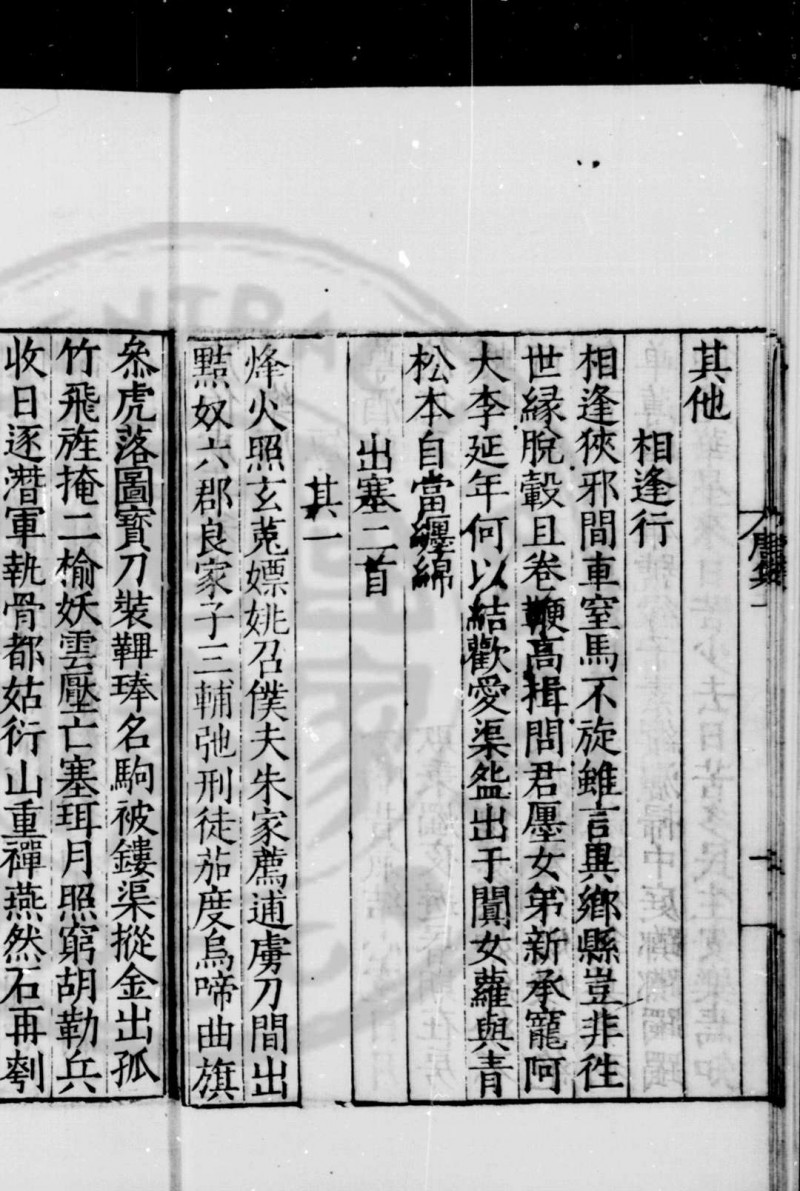 其他
相逢行
相逢狹邪間車窒馬不旋雖言異鄉縣豈非徃
世緣脫轂且卷鞭高揖問君廛女第新承寵阿
大李延年何以結歡愛渠盌出于闐女蘿與青
松本自當纏綿
出塞二首
其一
烽火照玄菟嫖姚召僕夫朱家薦逋虜刀間出
黠奴六郡良家子三輔弛刑徒茄度烏啼曲旗
叅虎落圖寳刀裝鞞琫名駒被鏤渠摐金出孤
竹飛旌掩二榆妖雲壓亡塞珥月照窮胡勒兵
收日逐潛軍執骨都姑衍山重禪燕然石再刳